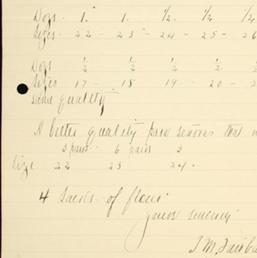 Doz. 1. 1. 1/2. 1/2 1/2
Sizes 22 - 23 - 24 - 25 - 26
Doz 1/2 1/2 1/2 1/2
Sizes 17 - 18 19 - 20 - 2
same quality
A better quality
3 pairs 6 pairs 3
Size 22 23 24 -
4 Sacks of flour
Yours sincerely
J. M.